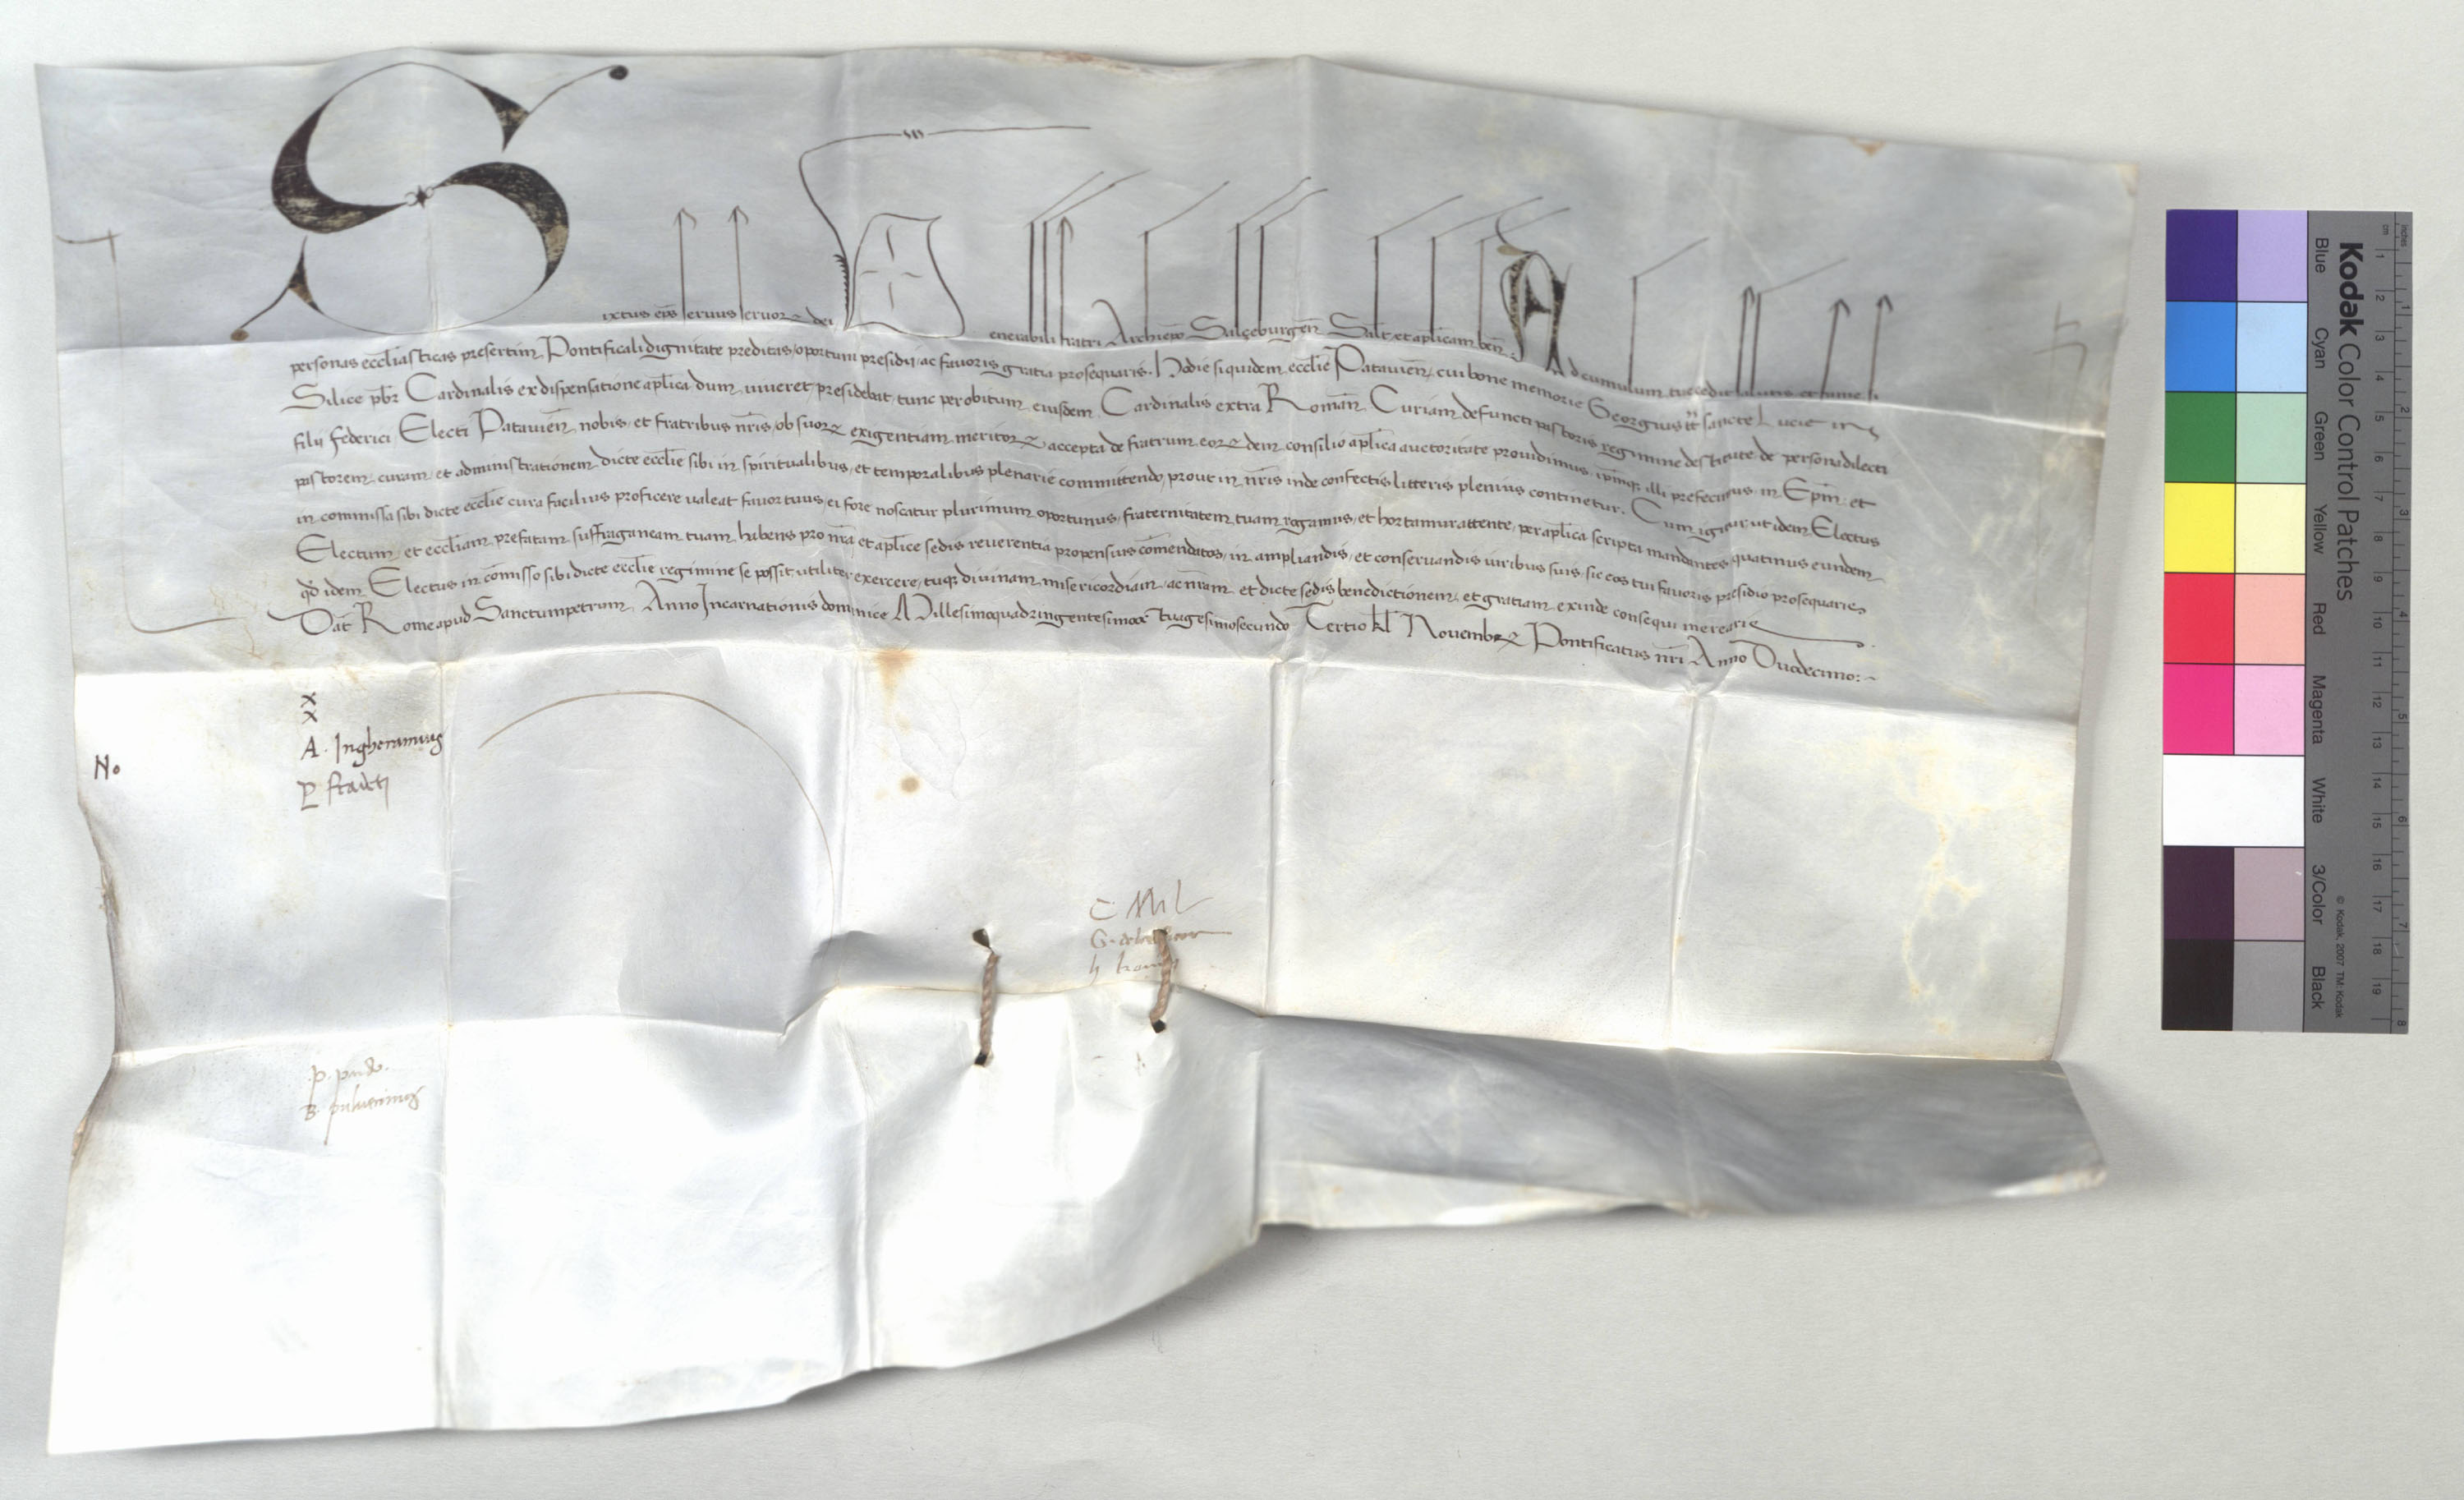 Sixtus ep̄s seruus seruoꝝ dei Venerabili fratri Archiep̄o Salczeburgeñ Salt̄ et aplicam beñ Ad cumulum tue cedit salutis et fame si
personas eccliasticas presertim Pontificali dignitate preditas oportuni presidij ac fauoris gratia prosequaris. Hodie siquidem ecclie Patauieñ cui bone memorie Georgius tt̄ sancte Lucie in
Silice pbr̄ Cardinalis ex dispensatione aplica dum uiueret presidebat tunc per obitum eiusdem Cardinalis extra Romañ Curiam defuncti pastoris regimine destitute de persona dilecti
filij federici Electi Patauieñ nobis et fratribus nr̄is ob suoꝝ exigentiam meritoꝝ accepta de fratrum eoꝝdem consilio aplica auctoritate prouidimus ipumqꝫ illi prefecimus in Ep̄m et
pastorem curam et administrationem dicte ecclie sibi in spiritualibus et temporalibus plenarie committendo prout in nr̄is inde confectis litteris plenius continetur. Cum igitur ut idem Electus
in commissa sibi dicte ecclie cura facilius proficere ualeat fauor tuus ei fore noscatur plurimum oportunus fraternitatem tuam rogamus et hortamur attente per aplica scripta mandantes quatinus eundem
Electum et eccliam prefatam suffraganeam tuam habens pro nr̄a et aplice sedis reuerentia propensius com̄endatos in ampliandis et conseruandis iuribus suis sic eos tui fauoris presidio prosequaris
qd̄ idem Electus in com̄isso sibi dicte ecclie regimine se possit utiliter exercere tuqꝫ diuinam misericordiam ac nr̄am et dicte sedis benedictionem et gratiam exinde consequi merearis
Dat̄ Rome apud Sanctumpetrum Anno Incarnationis dominice Millesimoquadringentesimooctuagesimosecundo Tertio kl̄ Nouembꝝ Pontificatus nr̄i Anno Duodecimo:~
x
x
A. Inghiramius
No
C
G. de
h
p.
B. puluerinus
Kodak Color Control Patches
Blue Cyan Green Yellow Red Magenta White 3/Color Black
© Kodak, 2007 TM: Kodak
inches 1 2 3 4 5 6 7 8
cm 1 2 3 4 5 6 7 8 9 10 11 12 13 14 15 16 17 18 19